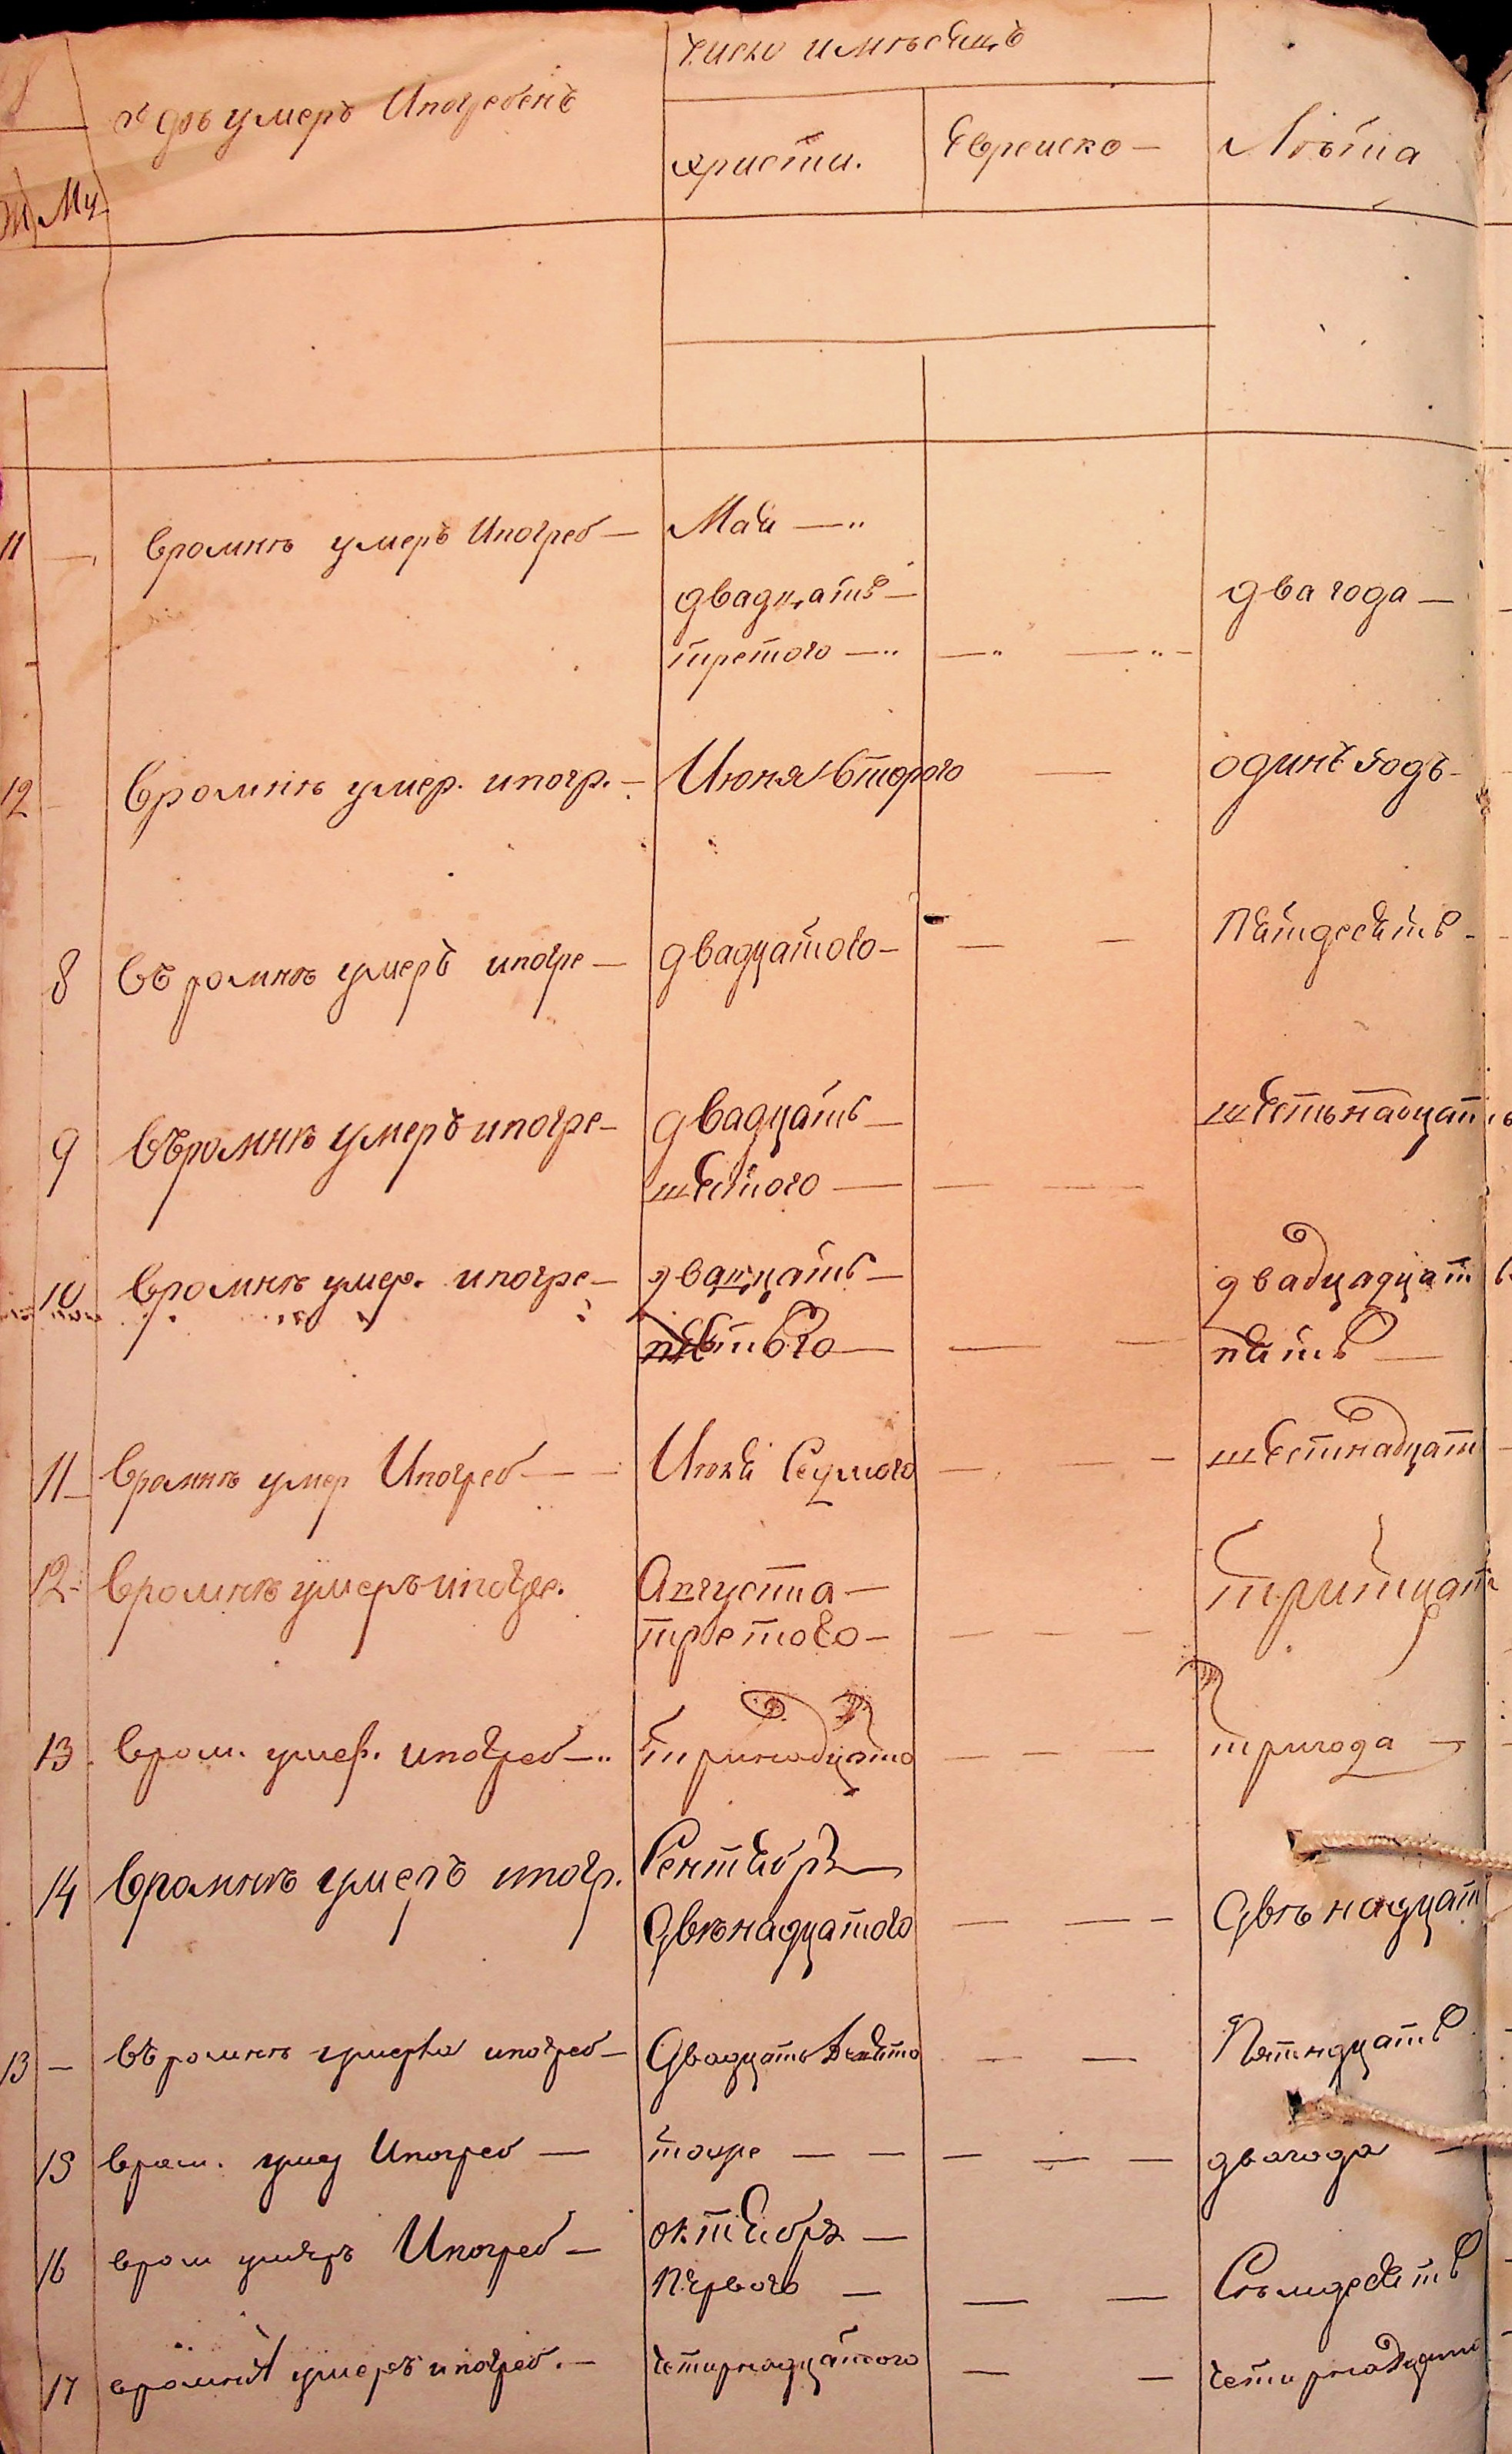 где умеръ Ипогребенъ
число имѣсецъ
христи.
Еврейско —
Лѣта
Ж Му
11 — вромнѣ умеръ Ипогреб — Мая —
двадцать — два года —
третого —
12 — Вромнѣ умер. ипогр. — Июня второго — одинъ годъ —
8 въ ромнѣ умеръ ипогре — двадцатого — — — Пятдесятъ —
9 въромнѣ умеръ ипогре — двадцать — шестьнадцать
шестого — — —
10 вромнѣ умер. ипогре — двадцать — двадцадцать
пять
11 — вромнѣ умер Ипогреб — — Июля Седмого — — — шестинадцат
12 — вромнѣ умеръ ипогре. Августа — тритцат
третого — — — —
13 вром. умер. ипогреб — тринадцато — — — тригода —
14 вромнѣ умеръ ипогр. Сентября
Двѣнадцатого — — — Двѣнадцат
13 — въ ромнѣ умерла ипогреб — Двадцать — — Пятндцать
15 вром. умер Ипогреб — тогре — — — — — двагода —
16 вром умеръ Ипогреб — октября —
Первого — — — Сѣмдесятъ
17 вромнѣ умеръ ипогреб. — Четирнадцатого — — Четирнадцат